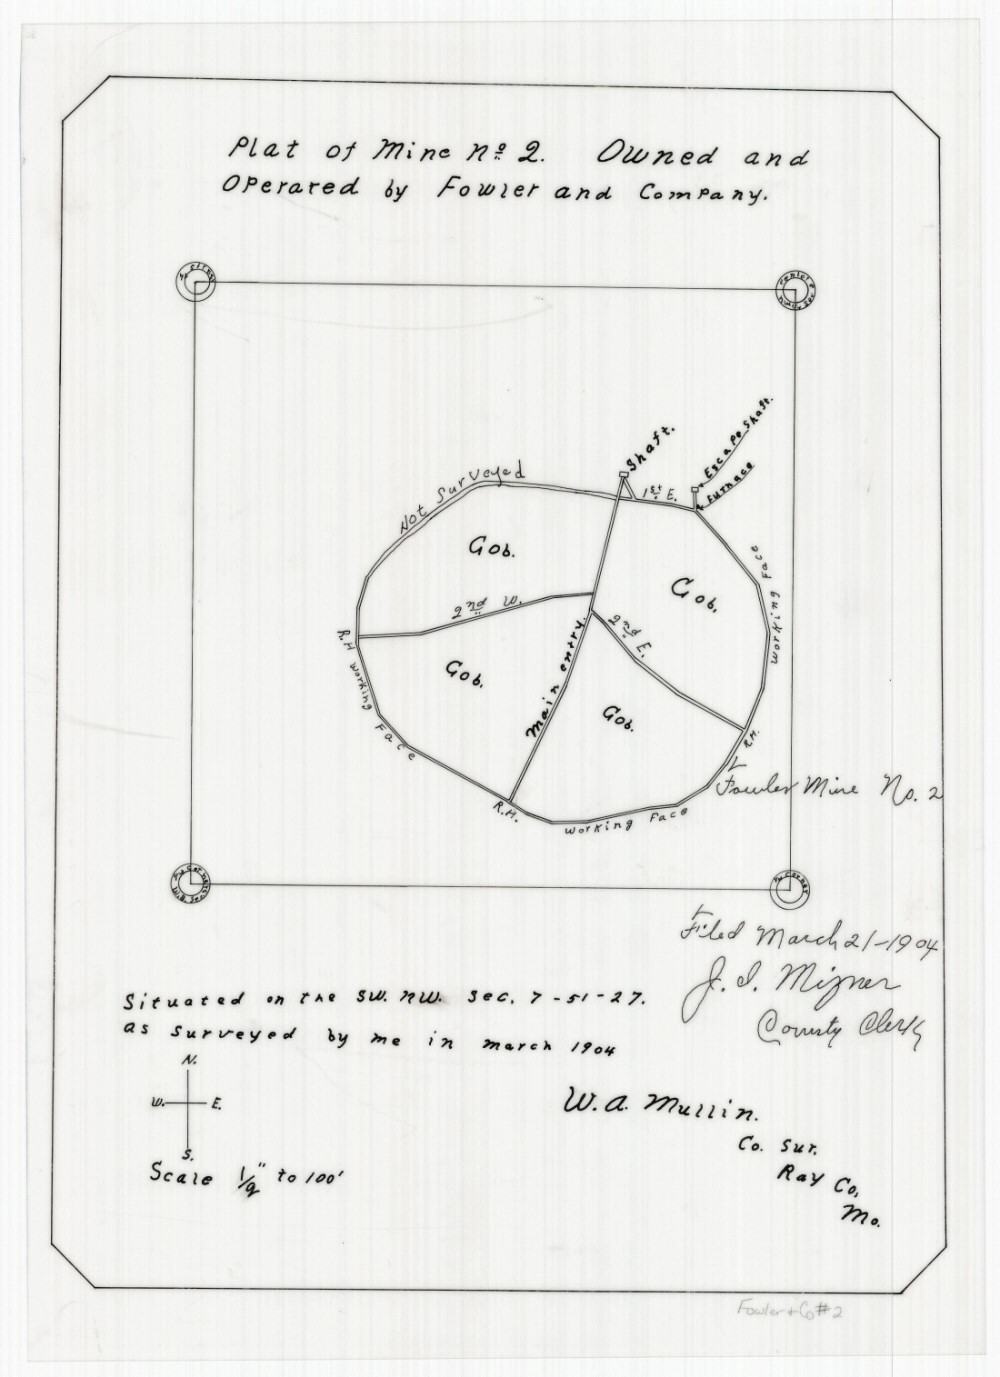 Plat of Mine No 2. Owned and
Operated by Fowler and Company.
Shaft.
Escape Shaft.
Furnace
1st E.
Not Surveyed
Gob.
Gob.
Working Face
2nd W.
2nd E.
R.H
Working Face
Gob.
Main entry.
Gob.
R.H.
Fowler Mine No. 2
R.H.
Working Face
Filed March 21-1904
J. I. Mizner
County Clerk
Situated on the SW. NW. Sec. 7-51-27.
as surveyed by me in march 1904
N.
W. E.
S.
Scale 1/2" to 100'
W. A. Mullin.
Co. Sur.
Ray Co,
Mo.
Fowler + Co #2